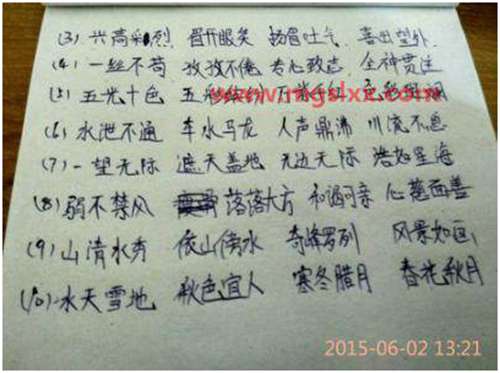 (3) 兴高彩烈 眉开眼笑 扬眉吐气 喜出望外
(4) 一丝不苟 孜孜不倦 专心致志 全神贯注
(5) 五光十色 五彩
www.mgslxx.com
(6) 水泄不通 车水马龙 人声鼎沸 川流不息
(7) 一望无际 遮天盖地 无边无际 浩如星海
(8) 弱不禁风 落落大方 和谒可亲 心慈面善
(9) 山清水秀 依山傍水 奇峰罗列 风景如画
(10) 水天雪地 秋色宜人 寒冬腊月 春花秋月
2015-06-02 13:21